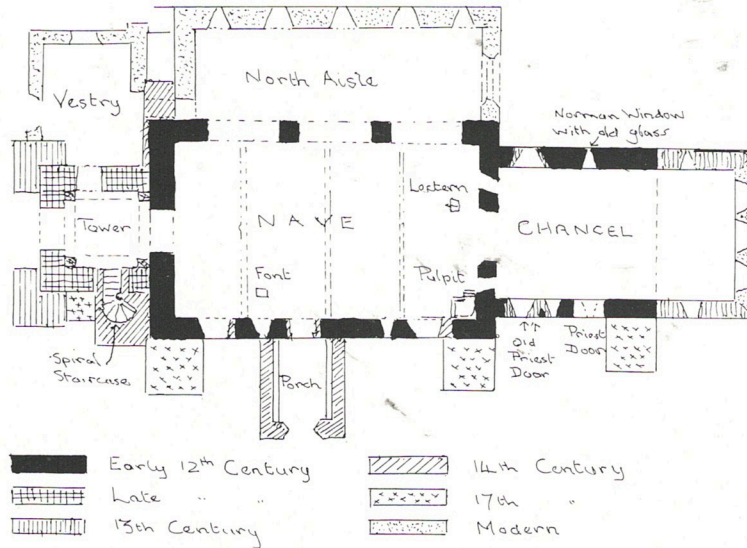 North Aisle
Vestry
Norman Window
with old glass
Lectern
Tower
NAVE
CHANCEL
Font
Pulpit
Spiral
Staircase
Porch
Old
Priest
Door
Priest
Door
Early 12th Century
Late " "
13th Century
14th Century
17th "
Modern